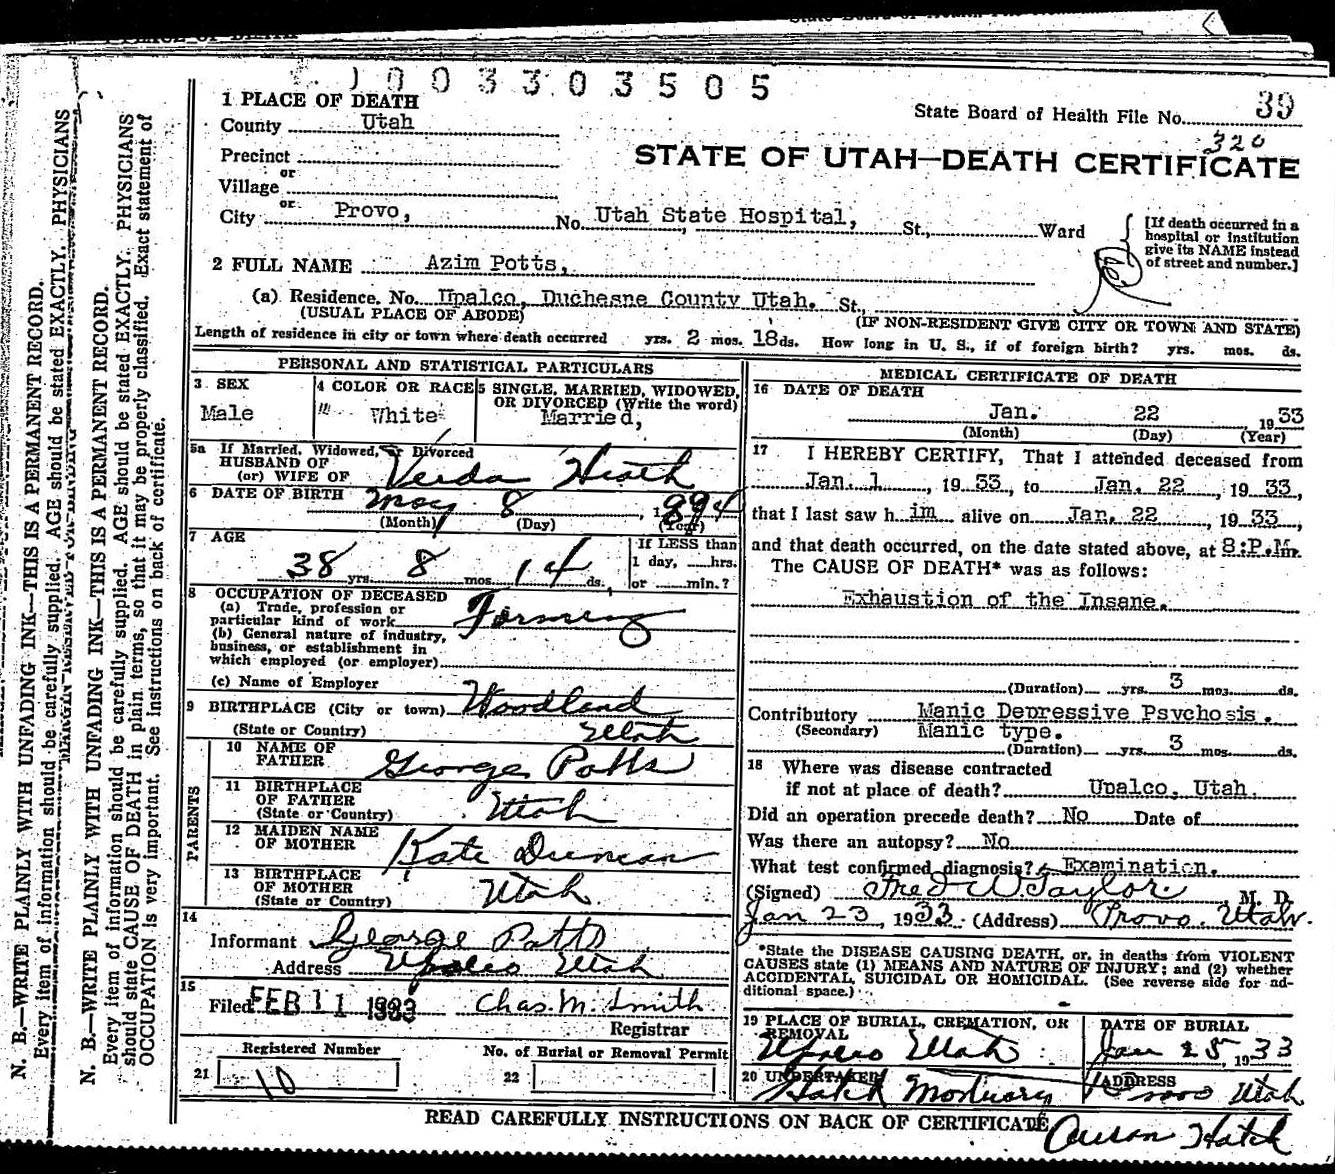 1003303505
1 PLACE OF DEATH
State Board of Health File No. 39
County Utah
320
Precinct
STATE OF UTAH—DEATH CERTIFICATE
or
Village
or
City Provo, No. Utah State Hospital, St., Ward
[If death occurred in a hospital or institution give its NAME instead of street and number.]
2 FULL NAME Azim Potts,
(a) Residence. No. Upalco, Duchesne County Utah. St.,
(USUAL PLACE OF ABODE) (IF NON-RESIDENT GIVE CITY OR TOWN AND STATE)
Length of residence in city or town where death occurred yrs. 2 mos. 18 ds. How long in U. S., if of foreign birth? yrs. mos. ds.
PERSONAL AND STATISTICAL PARTICULARS
3 SEX
Male
4 COLOR OR RACE
White
5 SINGLE, MARRIED, WIDOWED,
OR DIVORCED (Write the word)
Married,
5a If Married, Widowed, or Divorced
HUSBAND OF
(or) WIFE OF Verda Heath
6 DATE OF BIRTH May 8, 1894
(Month) (Day) (Year)
7 AGE
38 yrs. 8 mos. 14 ds.,
If LESS than
1 day, hrs.
or min.?
8 OCCUPATION OF DECEASED
(a) Trade, profession or
particular kind of work Farming
(b) General nature of industry,
business, or establishment in
which employed (or employer)
(c) Name of Employer
9 BIRTHPLACE (City or town) Woodland
(State or Country) Utah
PARENTS
10 NAME OF
FATHER George Potts
11 BIRTHPLACE
OF FATHER
(State or Country) Utah
12 MAIDEN NAME
OF MOTHER Kate Duncan
13 BIRTHPLACE
OF MOTHER
(State or Country) Utah
14
Informant George Potts
Address Upalco Utah
15
Filed FEB 11 1933 Chas. M. Smith
Registrar
Registered Number
21 10
No. of Burial or Removal Permit
22
MEDICAL CERTIFICATE OF DEATH
16 DATE OF DEATH
Jan. 22 1933
(Month) (Day) (Year)
17 I HEREBY CERTIFY, That I attended deceased from
Jan. 1, 1933, to Jan. 22, 1933,
that I last saw him alive on Jan. 22, 1933,
and that death occurred, on the date stated above, at 8:P.M.
The CAUSE OF DEATH* was as follows:
Exhaustion of the Insane.
(Duration) yrs. 3 mos. ds.
Contributory Manic Depressive Psychosis.
(Secondary) Manic type.
(Duration) yrs. 3 mos. ds.
18 Where was disease contracted
if not at place of death? Upalco, Utah.
Did an operation precede death? No Date of
Was there an autopsy? No
What test confirmed diagnosis? Examination.
(Signed) Fred W Taylor M. D.
Jan 23, 1933 (Address) Provo, Utah.
*State the DISEASE CAUSING DEATH, or, in deaths from VIOLENT
CAUSES state (1) MEANS AND NATURE OF INJURY; and (2) whether
ACCIDENTAL, SUICIDAL OR HOMICIDAL. (See reverse side for ad-
ditional space.)
19 PLACE OF BURIAL, CREMATION, OR
REMOVAL
Upalco Utah
DATE OF BURIAL
Jan 25, 1933
20 UNDERTAKER
Hatch Mortuary
ADDRESS
Utah
READ CAREFULLY INSTRUCTIONS ON BACK OF CERTIFICATE
Hatch
N. B.—WRITE PLAINLY WITH UNFADING INK—THIS IS A PERMANENT RECORD.
Every item of information should be carefully supplied. AGE should be stated EXACTLY. PHYSICIANS
N. B.—WRITE PLAINLY WITH UNFADING INK—THIS IS A PERMANENT RECORD.
Every item of information should be carefully supplied. AGE should be stated EXACTLY. PHYSICIANS
should state CAUSE OF DEATH in plain terms, so that it may be properly classified. Exact statement of
OCCUPATION is very important. See instructions on back of certificate.